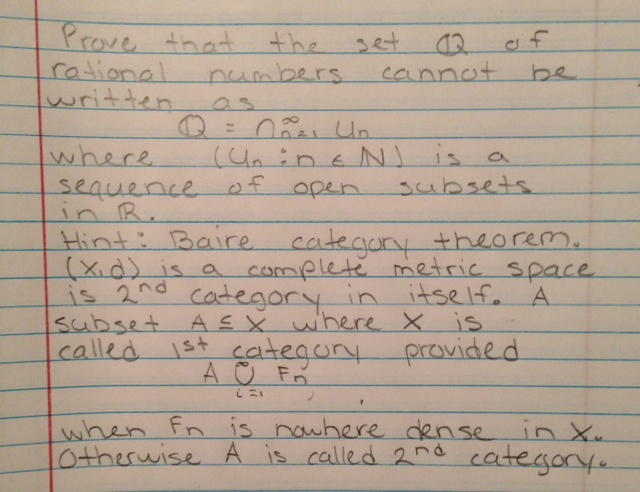 Prove that the set ℚ of
rational numbers cannot be
written as
ℚ = ∩_{n=1}^∞ Un
where (Un : n ∈ N) is a
sequence of open subsets
in ℝ.
Hint: Baire category theorem.
(X,d) is a complete metric space
is 2nd category in itself. A
subset A ⊆ X where X is
called 1st category provided
A ∪_{i=1}^∞ Fn,
when Fn is nowhere dense in X.
Otherwise A is called 2nd category.